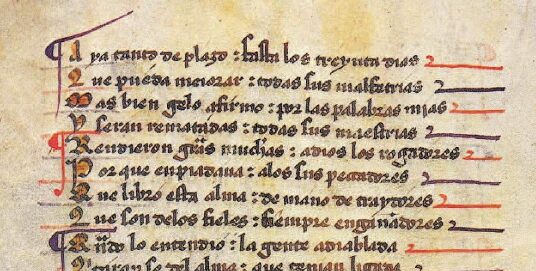 Aya tanto de plaço : fasta los treynta dias
Que pueda meiorar : todas sus malfetrias
Mas bien gelo afirmo : por las palabras mias
Y seran rematadas : todas sus maestrias
Rendieron grãs muchas : a dios los rogadores
Por que enpiadaua : a los sus pecadores
Que libro esta alma : de mano de traydores
Que son delos fieles : siempre engañadores
Quãdo lo entendio : la gente adiablada
Quitaran se del alma : que tenian ligada